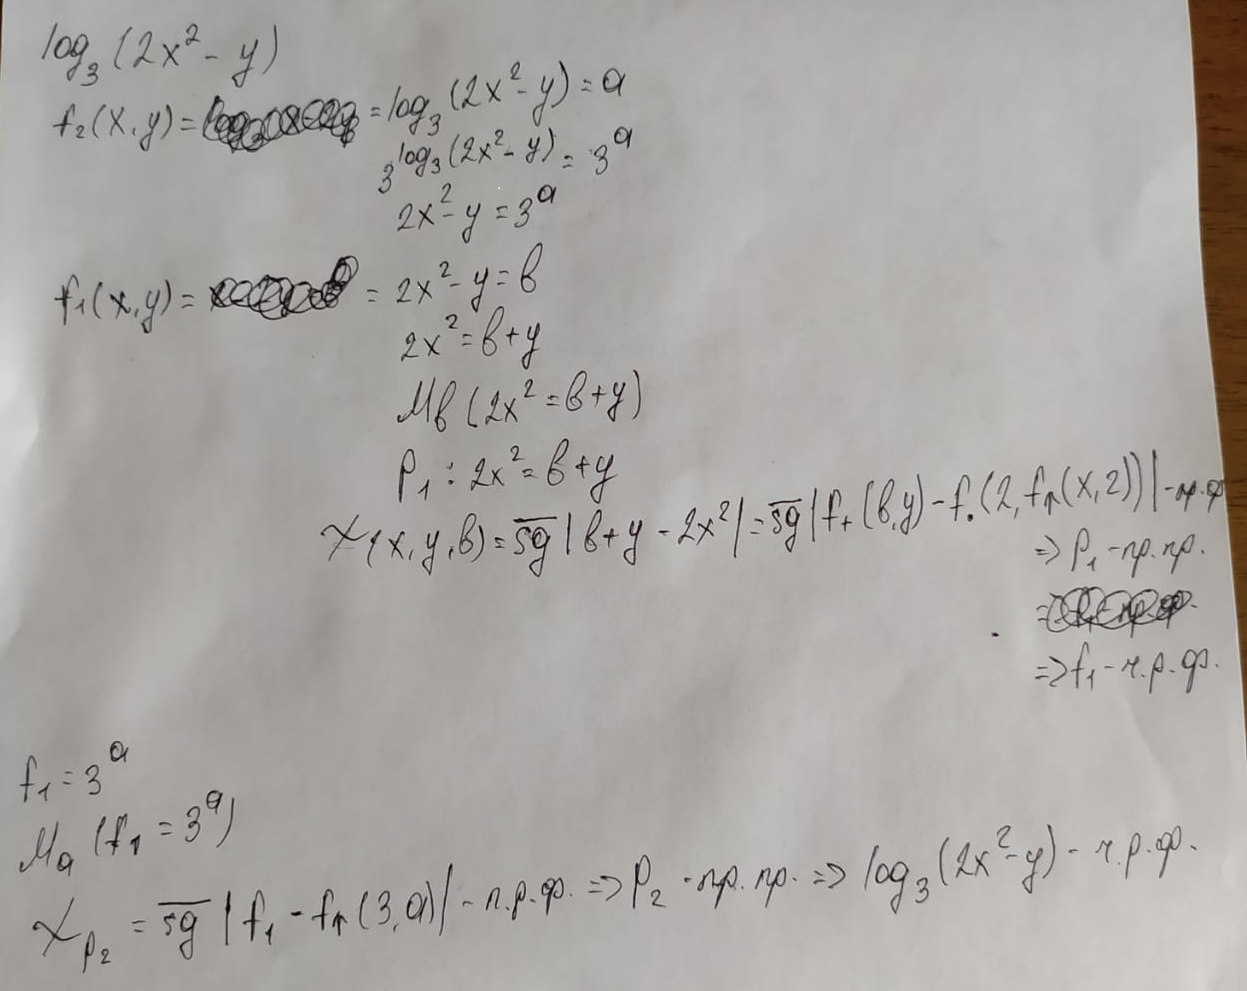 log₃(2x² - y)
f₂(x,y) = = log₃(2x² - y) = a
3^log₃(2x² - y) = 3^a
2x² - y = 3^a
f₁(x,y) = = 2x² - y = в
2x² = в + y
Mв(2x² = в + y)
P₁ : 2x² = в + y
χ(x,y,в) = s̅g̅ |в + y - 2x²| = s̅g̅ |f₊(в,y) - f.(2, f↑(x,2))| - пр.ф
=> P₁ - пр. пр.
=> f₁ - ч.р.ф.
f₁ = 3^a
Ma (f₁ = 3^a)
χ_P₂ = s̅g̅ |f₁ - f↑(3,a)| - п.р.ф. => P₂ - пр. пр. => log₃(2x² - y) - ч.р.ф.